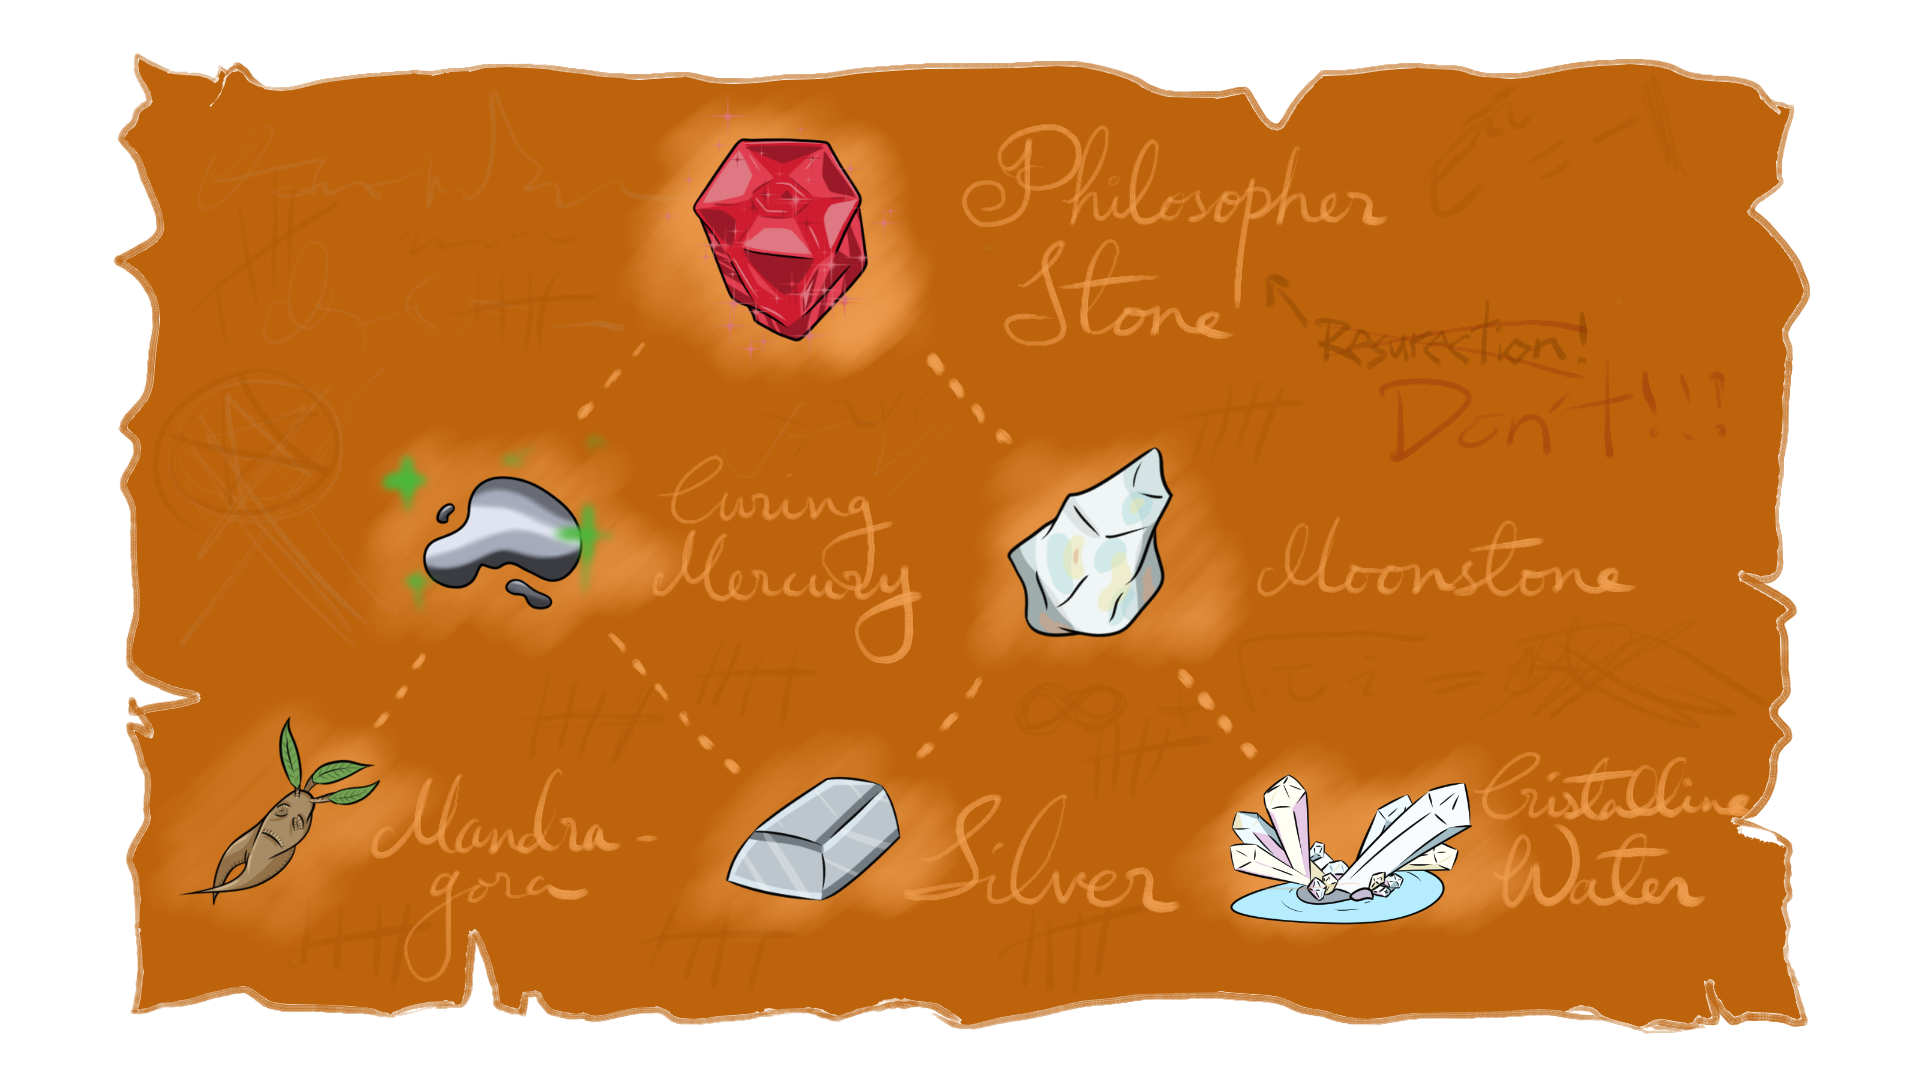 e^iπ = -1
Philosopher
Stone
Resurection!
Don't!!!
Curing
Mercury
Moonstone
Mandra-
gora
Silver
Cristalline
Water